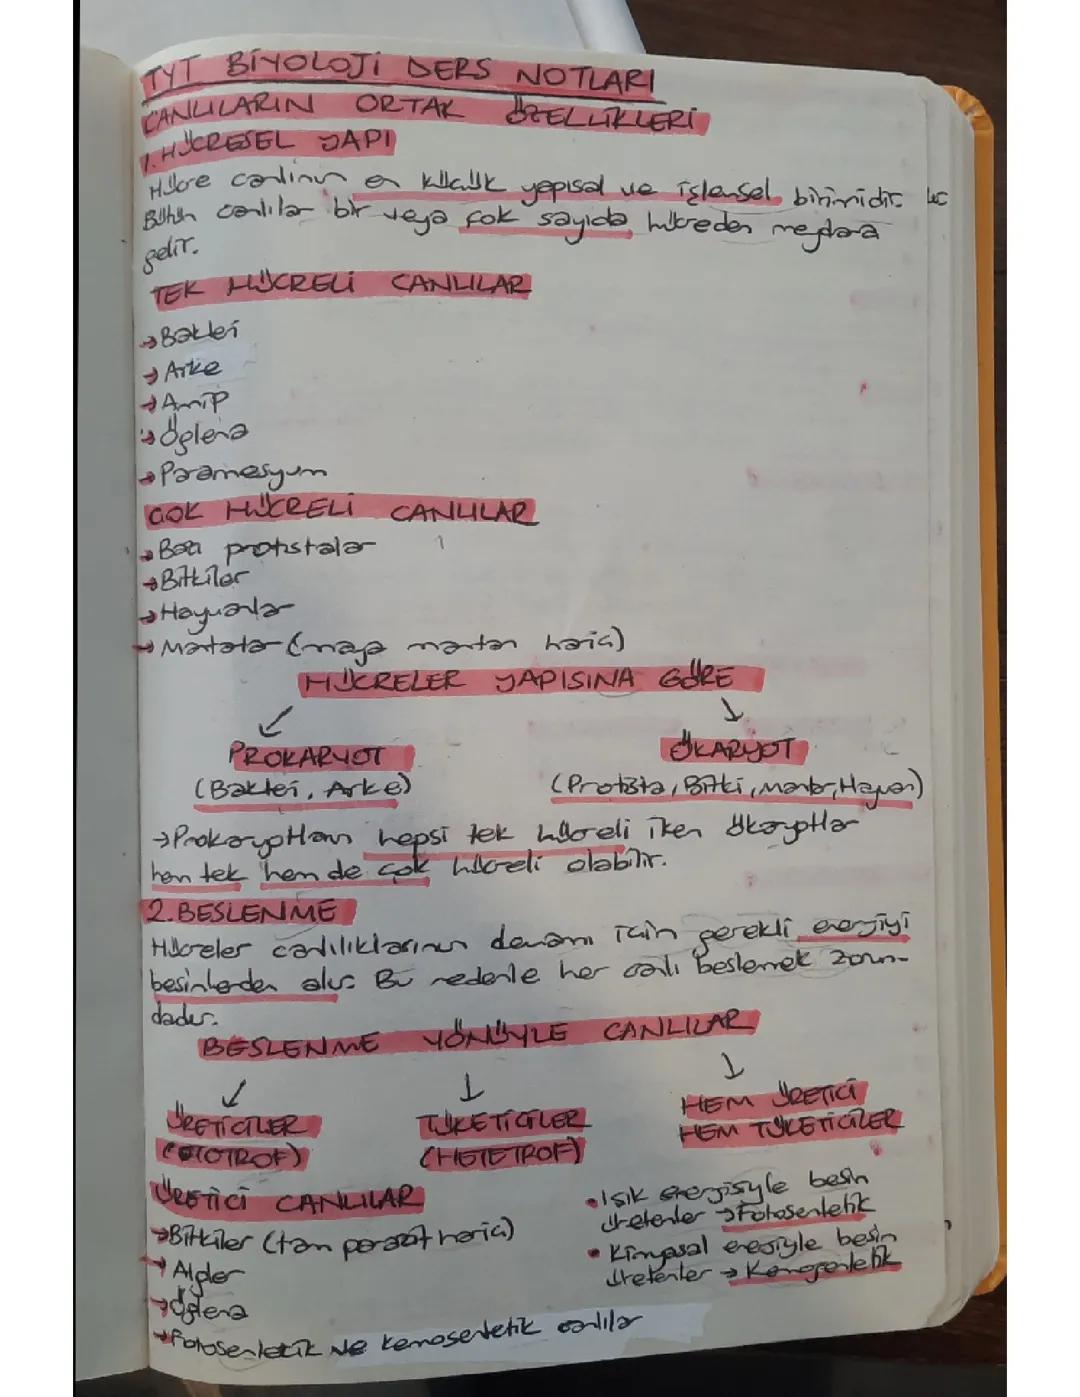 TYT BİYOLOJİ DERS NOTLARI
CANLILARIN ORTAK ÖZELLİKLERİ
1. HÜCRESEL YAPI
Hücre canlının en küçük yapısal ve işlevsel birimidir.
Bütün canlılar bir veya çok sayıda hücreden meydana
gelir.
TEK HÜCRELİ CANLILAR
→Bakteri
→Arke
→Amip
→Öglena
→Paramesyum
ÇOK HÜCRELİ CANLILAR
→Bazı protistalar
→Bitkiler
→Hayvanlar
→Mantarlar (maya mantarı hariç)
HÜCRELER YAPISINA GÖRE
PROKARYOT ÖKARYOT
(Bakteri, Arke) (Protista, Bitki, Mantar, Hayvan)
→Prokaryotların hepsi tek hücreli iken ökaryotlar
hem tek hem de çok hücreli olabilir.
2. BESLENME
Hücreler canlılıklarının devamı için gerekli enerjiyi
besinlerden alır. Bu nedenle her canlı beslenmek zorun-
dadır.
BESLENME YÖNÜYLE CANLILAR
ÜRETİCİLER TÜKETİCİLER HEM ÜRETİCİ
(OTOTROF) (HETETROF) HEM TÜKETİCİLER
ÜRETİCİ CANLILAR
→Bitkiler (tam parazit hariç)
→Algler
→Öglena
→Fotosentetik ve kemosentetik canlılar
•Işık enerjisiyle besin
üretenler →Fotosentetik
•Kimyasal enerjiyle besin
üretenler →Kemosentetik